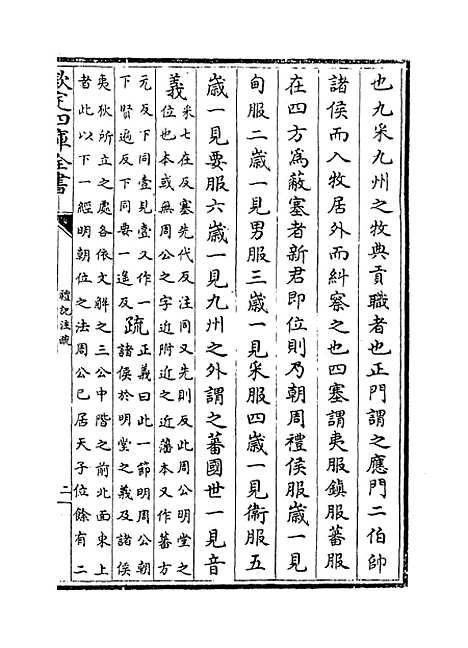 也九采九州之牧典貢職者也正門謂之應門二伯帥
諸侯而入牧居外而糾察之也四塞謂夷服鎮服蕃服
在四方為蔽塞者新君即位則乃朝周禮侯服歲一見
甸服二歲一見男服三歲一見采服四歲一見衛服五
歲一見要服六歲一見九州之外謂之蕃國世一見音
義采七在反塞先代反注同又先則反此周公明堂之
位也本或無周公之字近附近之近藩本又作蕃方
元反下同壹見壹又作一朝直遙反下同要一遙反疏正義曰此一節明周公朝
諸侯於明堂之義及諸侯
夷狄所立之處各依文解之三公中階之前北面東上
者此以下一經明朝位之法周公已居天子位餘有二
欽定四庫全書
禮記注疏
二